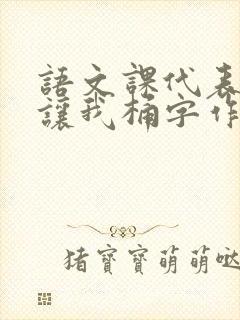 語文課代表
讓我桶字作
猪寶寶萌萌哒